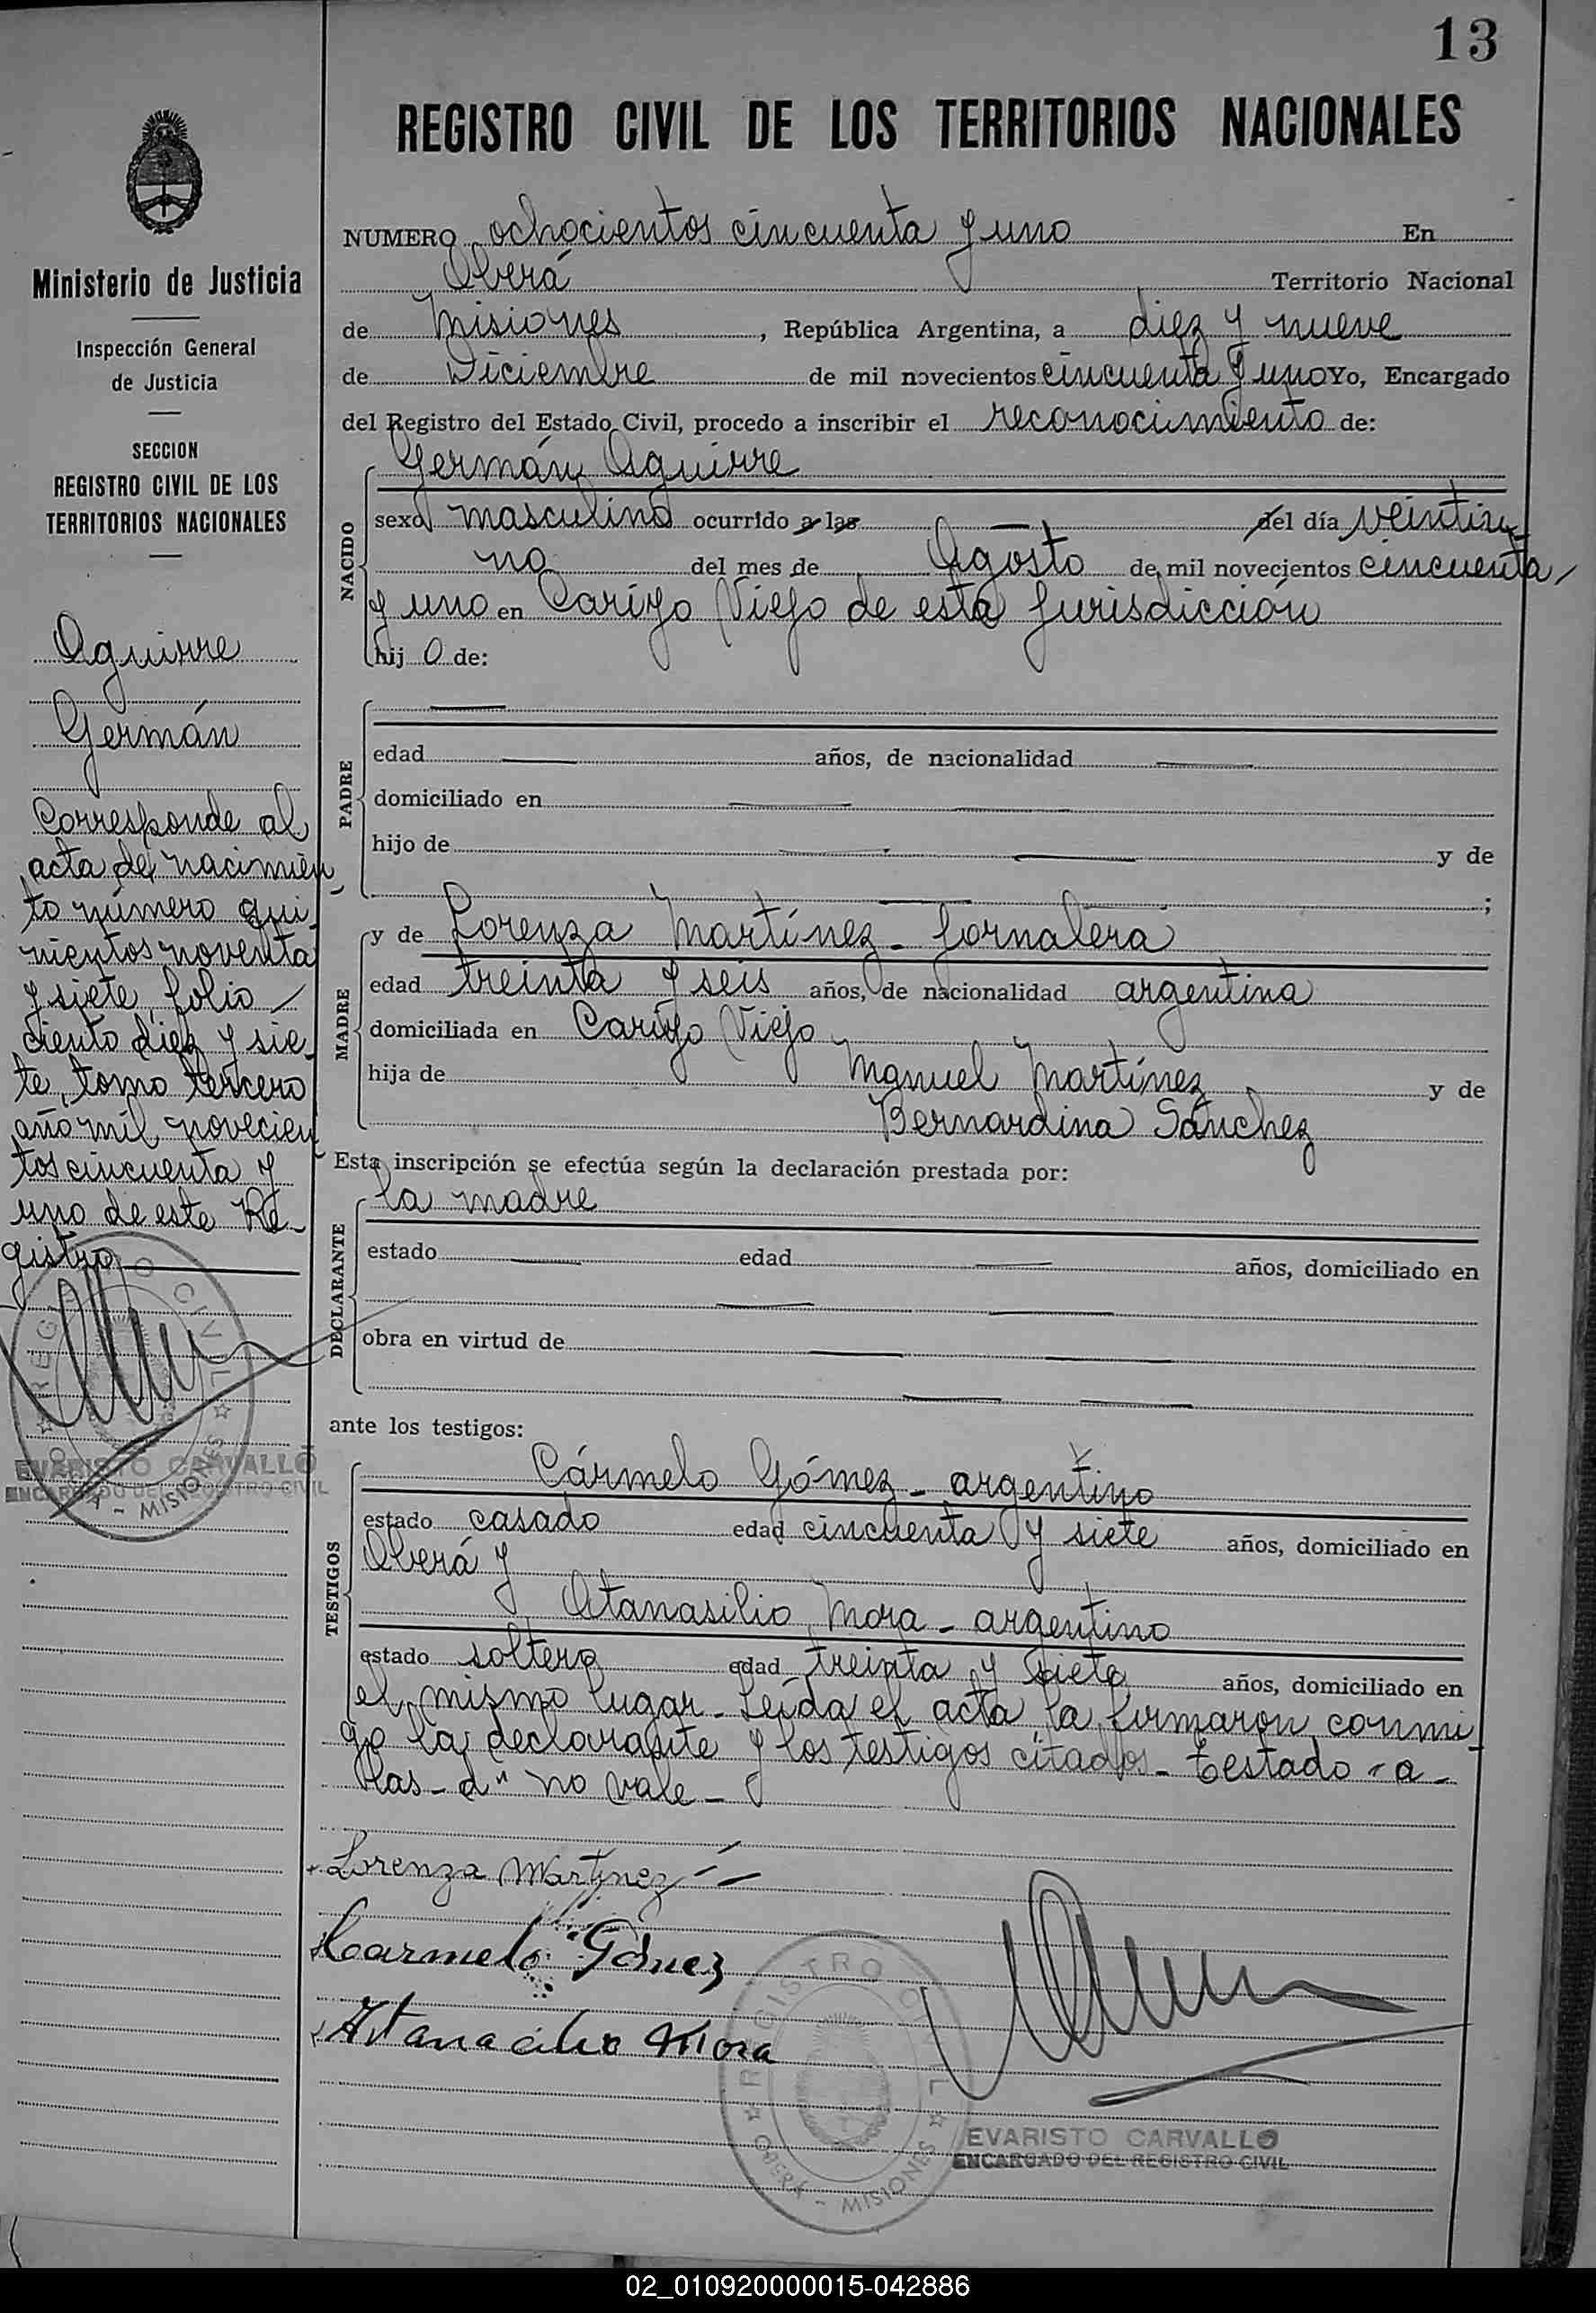 13
REGISTRO CIVIL DE LOS TERRITORIOS NACIONALES
Ministerio de Justicia
Inspección General
de Justicia
SECCION
REGISTRO CIVIL DE LOS
TERRITORIOS NACIONALES
Aguirre
Germán
Corresponde al
acta de nacimien
to número qui
nientos noventa
y siete, folio
ciento diez y sie
te, tomo tercero
año mil novecien
tos cincuenta y
uno de este Re-
gistro
REGISTRO CIVIL
OBERA - MISIONES
EVARISTO CARVALLO
ENCARGADO DEL REGISTRO CIVIL
NUMERO ochocientos cincuenta y uno En
Oberá Territorio Nacional
de Misiones, República Argentina, a diez y nueve
de Diciembre de mil novecientos cincuenta y uno Yo, Encargado
del Registro del Estado Civil, procedo a inscribir el reconocimiento de:
NACIDO
Germán Aguirre
sexo masculino ocurrido a las — del día veintiu
no del mes de Agosto de mil novecientos cincuenta
y uno en Cariyo Viejo de esta jurisdicción
hij o de:
PADRE
—
edad — años, de nacionalidad —
domiciliado en — —
hijo de — — y de
— ;
MADRE
y de Lorenza Martínez - Jornalera
edad treinta y seis años, de nacionalidad argentina
domiciliada en Cariyo Viejo
hija de Manuel Martínez y de
Bernardina Sánchez
Esta inscripción se efectúa según la declaración prestada por:
DECLARANTE
la madre
estado — edad — años, domiciliado en
— —
obra en virtud de — —
— —
ante los testigos:
TESTIGOS
Cármelo Gómez - argentino
estado casado edad cincuenta y siete años, domiciliado en
Oberá y
Atanasilio Mora - argentino
estado soltero edad treinta y siete años, domiciliado en
el mismo lugar - Leída el acta, la firmaron conmi
go la declarante y los testigos citados - Testado "a -
las - d" no vale -
Lorenza Martynez
Carmelo Gómez
Atanacilio Mora
REGISTRO CIVIL
OBERA - MISIONES
EVARISTO CARVALLO
ENCARGADO DEL REGISTRO CIVIL
02_010920000015-042886